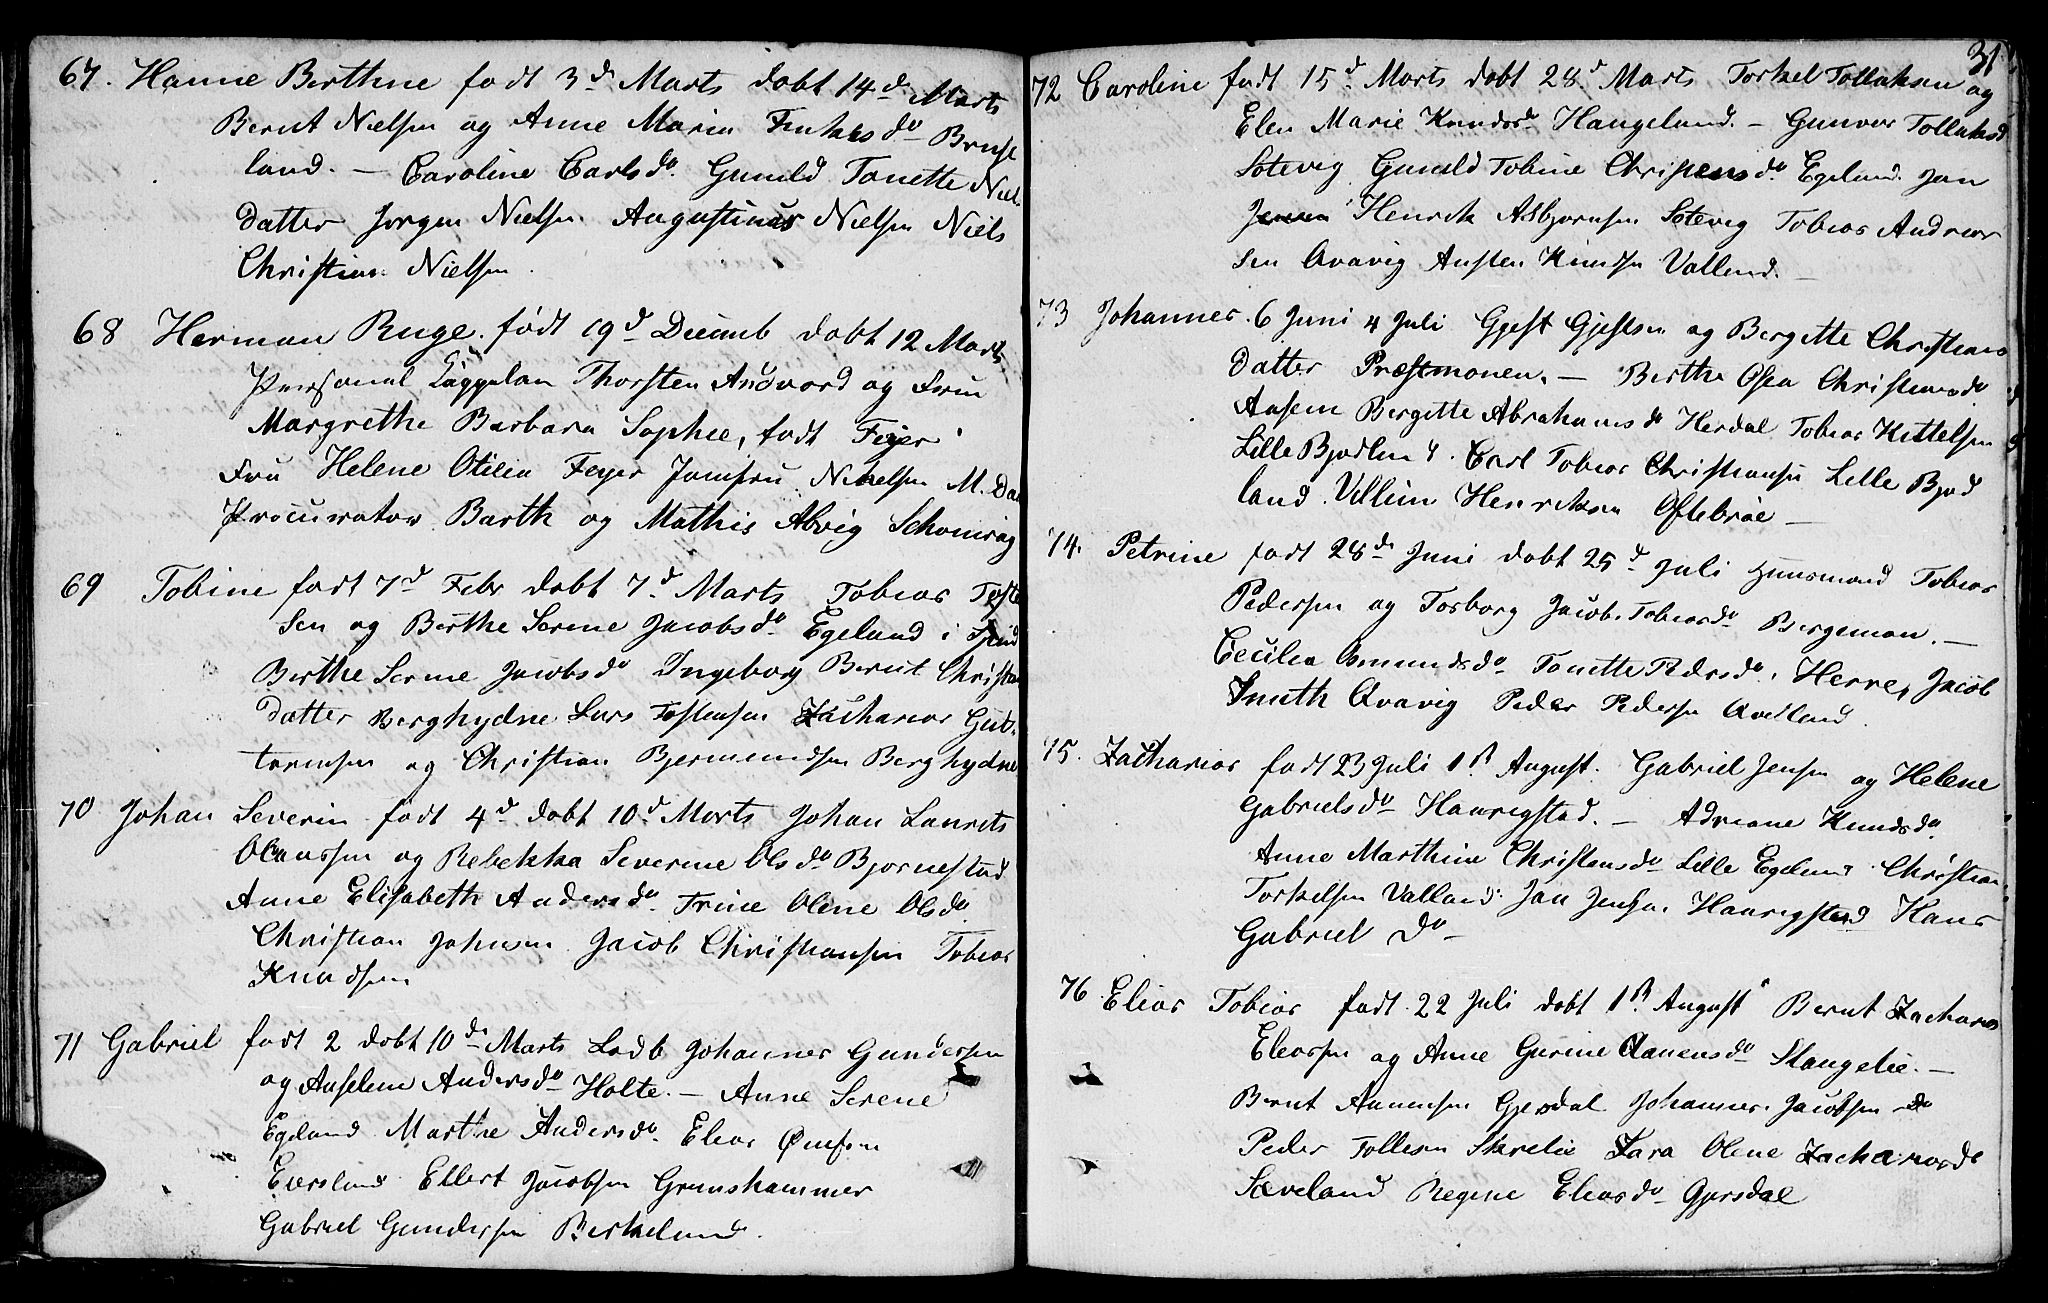 67. Hanne Berthine født 3d Marts dobt 14d Marts
Bernt Nielsen og Anne Maria Finkesdr Bruse
land. — Caroline Carlsdr. Gunild Tonette Niel.
datter Jorgen Nielsen Augustinus Nielsen Niels
Christian Nielsen.
68 Herman Ruge. født 19d Decemb dobt 12 Marts
Personel Cappelan Thorsten Andvord og Fru
Margrethe Barbara Sophie, født Feyer
Fru Helene Otilia Feyer Jomfru Nielsen M. Da
Procurator Barth og Mathis Abvig Schomrag
69 Tobine født 7d Febr dobt 7d Marts Tobias Toste
sen og Berthe Serine Jacobsdr Egeland i
Berthe Serine Jacobsdr Ingeborg Bernt Christian
datter Berghydne Lars Tostensen Zacharias Gut-
tormsen og Christian Bjermundsen Berghydne
70 Johan Severin født 4d dobt 10d Marts Johan Laurits
Olaussen og Rebekka Severine Olsdr Bjornestad
Anne Elisabeth Andersdr. Trine Oline Olsdr.
Christian Johnsen Jacob Christiansen Tobias
Knudsen
71 Gabriel født 2 dobt 10d Marts Ladb Johannes Gundersen
og Anseline Andersdr Holte. — Anne Serene
Egeland Marthe Andersdr. Elias Omsen
Eversland Ellert Jacobsen Grunshammer
Gabriel Gundersen Birkeland.
31
72 Caroline født 15d Marts dobt 28d Marts Torkel Tollaksen og
Elen Marie Knudsdr Haugeland. — Gunvor Tollaksd
Sotevig Gunild Tobine Christensdr. Egeland. Jan
Henrik Asbjornsen Sotevig Tobias Andreas
sen Qvavig Austen Knudsen Valland. —
73 Johannes. 6 Juni 4 Juli Gjest Gjestsen og Bergitte Christians
datter Præstmonen. — Berthe Osea Christensdr
Aasem Bergitte Abrahamsdr Herdal Tobias Kittelsen
Lille Bjodland. Carl Tobias Christiansen Lille Bjod
land. Villum Henriksen Oftebroe —
74. Petrine født 28d Juni dobt 25d Juli Huusmand Tobias
Pedersen og Torborg Jacob. Tobiasdr Bergeman. —
Cecilia Omundsdr Tonette Pedersdr. Herre, Jacob
Smith Qvavig Peder Pedersen Qvelland.
75. Zacharias født 23 Juli 1st August. Gabriel Jensen og Helene
Gabrielsdr Haarigstad. — Adriane Knudsdr.
Anne Marthine Christensdr Lille Egeland Christian
Torkelsen Valland. Jan Jensen Haarigstad Hans
Gabriel do
76. Elias Tobias født 22 Juli dobt 1st August Bernt Zacharias
Eleassen og Anne Gurine Aanensdr Stangelie. —
Bernt Aanensen Gjersdal Johannes Jacobsen do
Peder Tollesen Skrelie Sara Oline Zachariasdr
Sæveland Regine Eliasdr Gjersdal